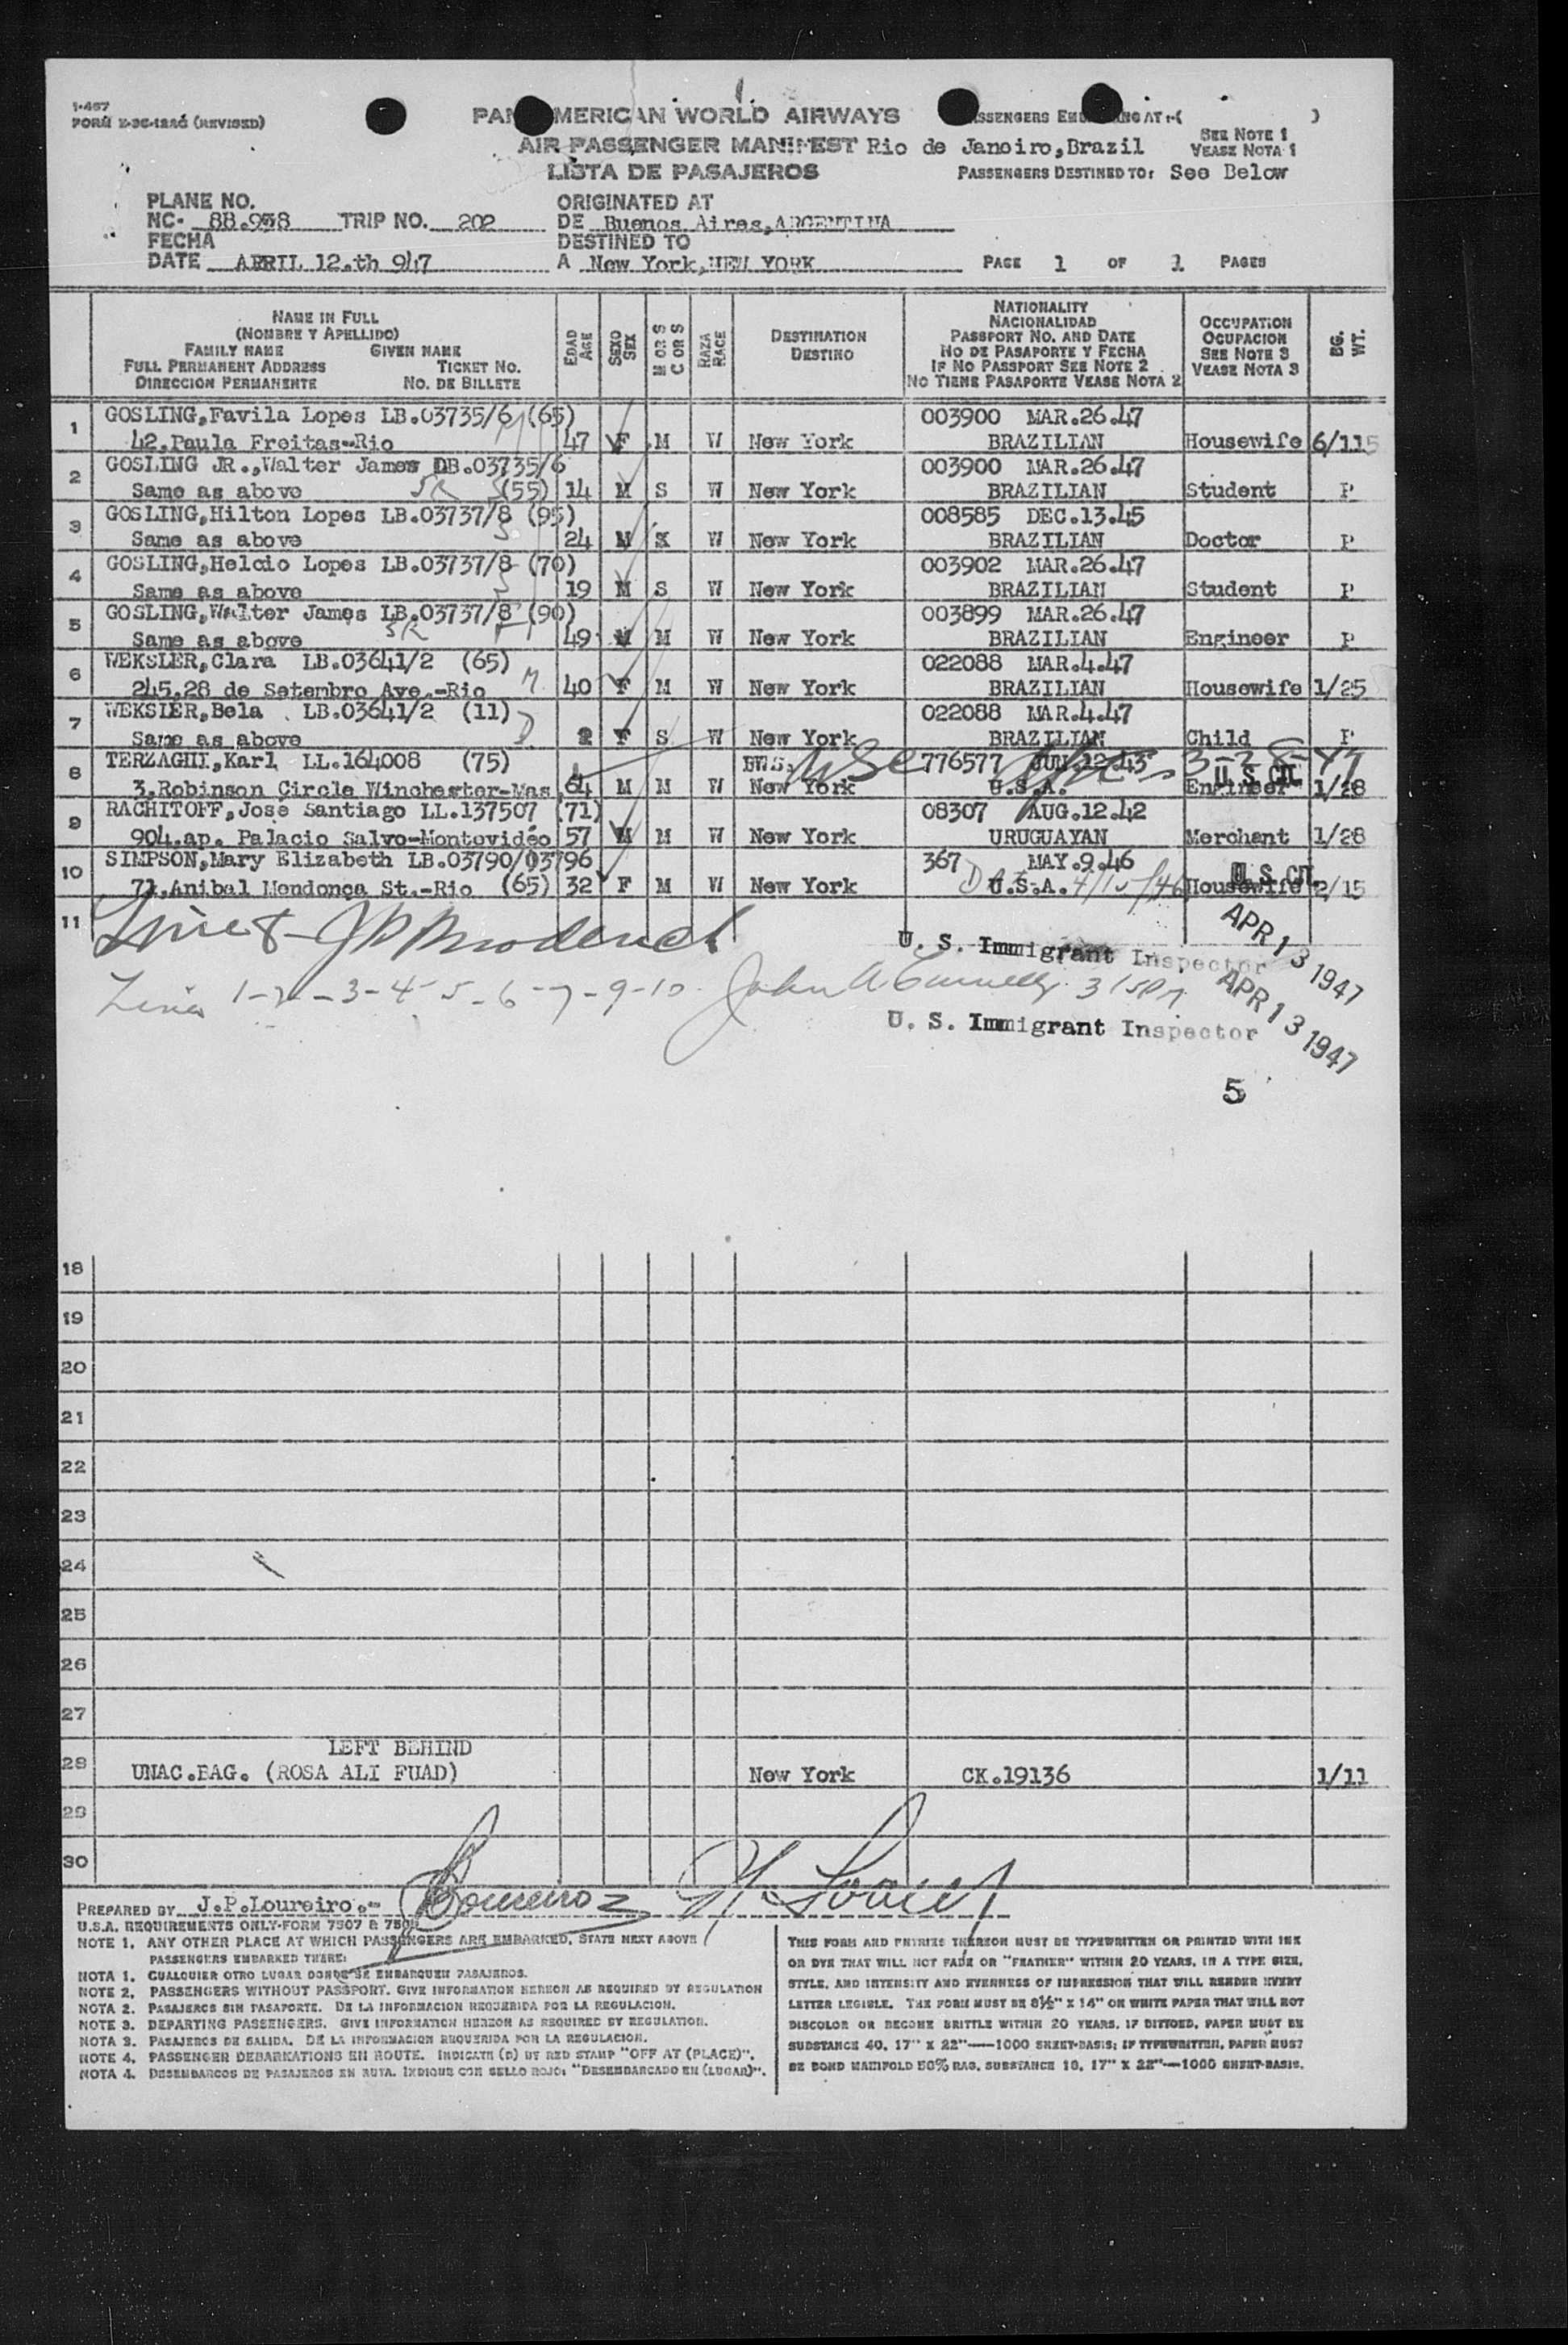 I-467
FORM
(REVISED)
PAN AMERICAN WORLD AIRWAYS
AIR PASSENGER MANIFEST
LISTA DE PASAJEROS
PASSENGERS EMBARKING AT:-( )
Rio de Janeiro, Brazil
SEE NOTE 1
VEASE NOTA 1
PASSENGERS DESTINED TO: See Below
PLANE NO.
NC- 88.938 TRIP NO. 202
FECHA
DATE APRIL 12.th 947
ORIGINATED AT
DE Buenos Aires, ARGENTINA
DESTINED TO
A New York, NEW YORK
PAGE 1 OF 1 PAGES
NAME IN FULL
(NOMBRE Y APELLIDO)
FAMILY NAME GIVEN NAME
FULL PERMANENT ADDRESS TICKET NO.
DIRECCION PERMANENTE NO. DE BILLETE
EDAD AGE
SEXO SEX
M OR S C OR S
RAZA RACE
DESTINATION
DESTINO
NATIONALITY
NACIONALIDAD
PASSPORT NO. AND DATE
NO DE PASAPORTE Y FECHA
IF NO PASSPORT SEE NOTE 2
NO TIENE PASAPORTE VEASE NOTA 2
OCCUPATION
OCUPACION
SEE NOTE 3
VEASE NOTA 3
BG. WT.
1 GOSLING,Favila Lopes LB.03735/6 (65) 003900 MAR.26.47
42,Paula Freitas-Rio 47 F M W New York BRAZILIAN Housewife 6/115
2 GOSLING JR.,Walter James LB.03735/6 003900 MAR.26.47
Same as above (55) 14 M S W New York BRAZILIAN Student P
3 GOSLING,Hilton Lopes LB.03737/8 (95) 008585 DEC.13.45
Same as above 24 M W New York BRAZILIAN Doctor P
4 GOSLING,Helcio Lopes LB.03737/8 (70) 003902 MAR.26.47
Same as above 19 M S W New York BRAZILIAN Student P
5 GOSLING,Walter James LB.03737/8 (90) 003899 MAR.26.47
Same as above 49 M M W New York BRAZILIAN Engineer P
6 WEKSLER,Clara LB.03641/2 (65) 022088 MAR.4.47
245,28 de Setembro Ave.-Rio 40 F M W New York BRAZILIAN Housewife 1/25
7 WEKSLER,Bela LB.03641/2 (11) 022088 MAR.4.47
Same as above 2 F S W New York BRAZILIAN Child P
8 TERZAGHI,Karl LL.164008 (75) 776577 JUN.12.45 3-28-47
3,Robinson Circle Winchester-Mas 64 M M W New York U.S.A. Engineer U.S. CIT. 1/28
9 RACHITOFF,José Santiago LL.137507 (71) 08307 AUG.12.42
904.ap. Palacio Salvo-Montevideo 57 M M W New York URUGUAYAN Merchant 1/28
10 SIMPSON,Mary Elizabeth LB.03790/03796 367 MAY.9.46 U.S. CIT.
71,Anibal Mendonça St.-Rio (65) 32 F M W New York U.S.A. Housewife 2/15
11
U. S. Immigrant Inspector
APR 13 1947
Line 1-2-3-4-5-6-7-9-10
U. S. Immigrant Inspector
APR 13 1947
5
18
19
20
21
22
23
24
25
26
27
LEFT BEHIND
28 UNAC.BAG. (ROSA ALI FUAD) New York CK.19136 1/11
29
30
PREPARED BY J.P.Loureiro.-
U.S.A. REQUIREMENTS ONLY-FORM 7507 & 7509
NOTE 1. ANY OTHER PLACE AT WHICH PASSENGERS ARE EMBARKED, STATE NEXT ABOVE
PASSENGERS EMBARKED THERE:
NOTA 1. CUALQUIER OTRO LUGAR DONDE SE EMBARQUEN PASAJEROS.
NOTE 2. PASSENGERS WITHOUT PASSPORT. GIVE INFORMATION HEREON AS REQUIRED BY REGULATION
NOTA 2. PASAJEROS SIN PASAPORTE. DE LA INFORMACION REQUERIDA POR LA REGULACION.
NOTE 3. DEPARTING PASSENGERS. GIVE INFORMATION HEREON AS REQUIRED BY REGULATION.
NOTA 3. PASAJEROS DE SALIDA. DE LA INFORMACION REQUERIDA POR LA REGULACION.
NOTE 4. PASSENGER DEBARKATIONS EN ROUTE. INDICATE (D) BY RED STAMP "OFF AT (PLACE)".
NOTA 4. DESEMBARCOS DE PASAJEROS EN RUTA. INDIQUE CON SELLO ROJO: "DESEMBARCADO EN (LUGAR)".
THIS FORM AND ENTRIES THEREON MUST BE TYPEWRITTEN OR PRINTED WITH INK
OR DYE THAT WILL NOT FADE OR "FEATHER" WITHIN 20 YEARS, IN A TYPE SIZE,
STYLE, AND INTENSITY AND EVENNESS OF IMPRESSION THAT WILL RENDER EVERY
LETTER LEGIBLE. THE FORM MUST BE 8½" X 14" ON WHITE PAPER THAT WILL NOT
DISCOLOR OR BECOME BRITTLE WITHIN 20 YEARS. IF DITTOED, PAPER MUST BE
SUBSTANCE 40, 17" X 22"—1000 SHEET-BASIS; IF TYPEWRITTEN, PAPER MUST
BE BOND MANIFOLD 50% RAG, SUBSTANCE 16, 17" X 22"—1000 SHEET-BASIS.